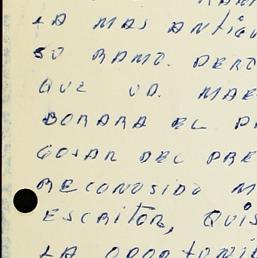 LA MAS ANTIGU
SU RAMO. PERO
QUE UD. MAE
BORARA EL P
GOSAR DEL PRE
RECONOSIDO M
ESCRITOR, QUIS
LA OPORTUNI